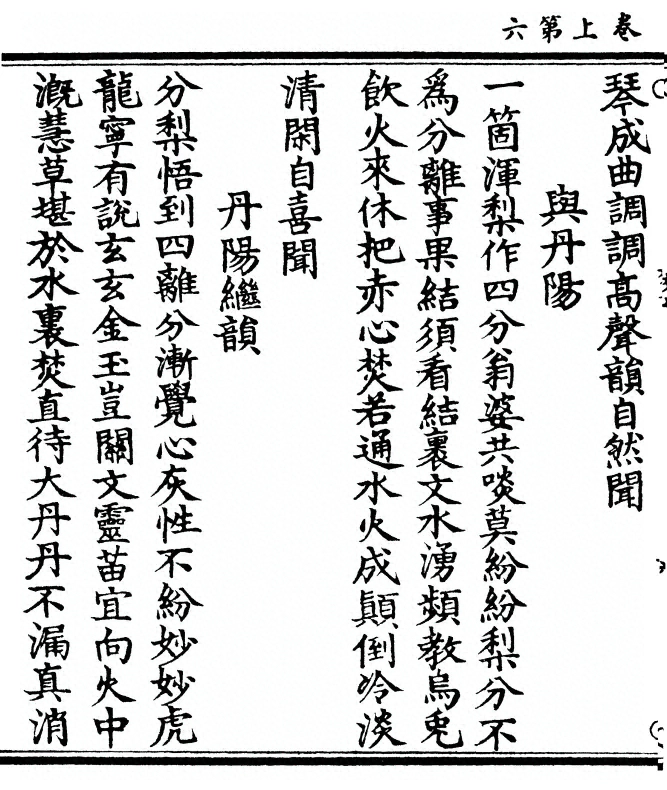 卷上第六
琴成曲調調高聲韻自然聞
與丹陽
一箇渾梨作四分翁婆共啖莫紛紛梨分不
爲分離事果結須看結裹文水湧頻教烏兎
飲火來休把赤心焚若通水火成顛倒冷淡
清閑自喜聞
丹陽繼韻
分梨悟到四離分漸覺心灰性不紛妙妙虎
龍寧有說玄玄金玉豈關文靈苗宜向火中
溉慧草堪於水裏焚直待大丹丹不漏真消